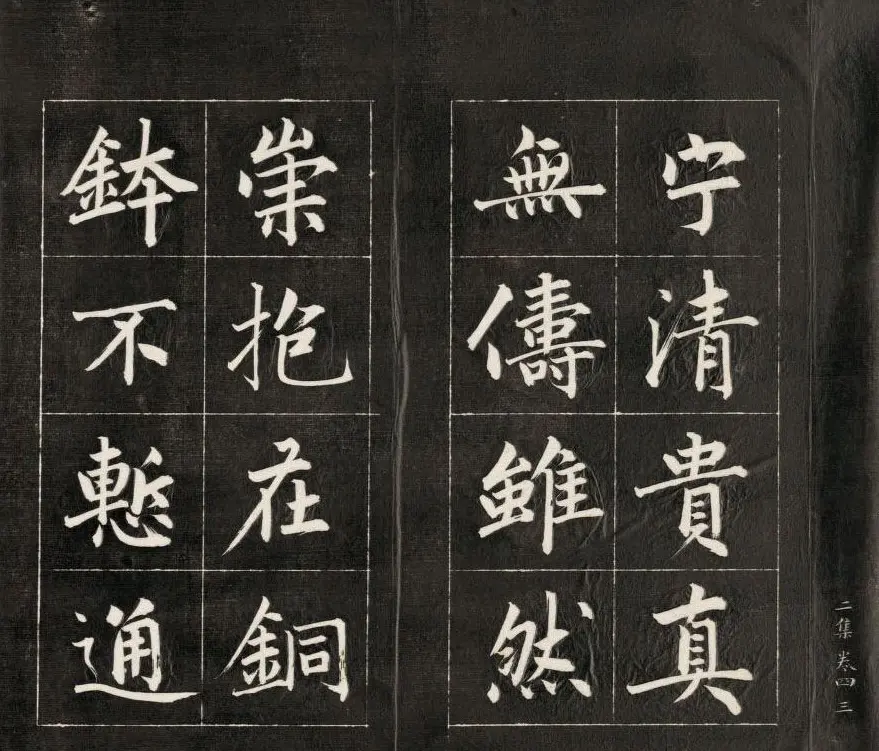 二集 卷四 三
宁清貴真
無儔雖然
崇抱在銅
鉢不慙通